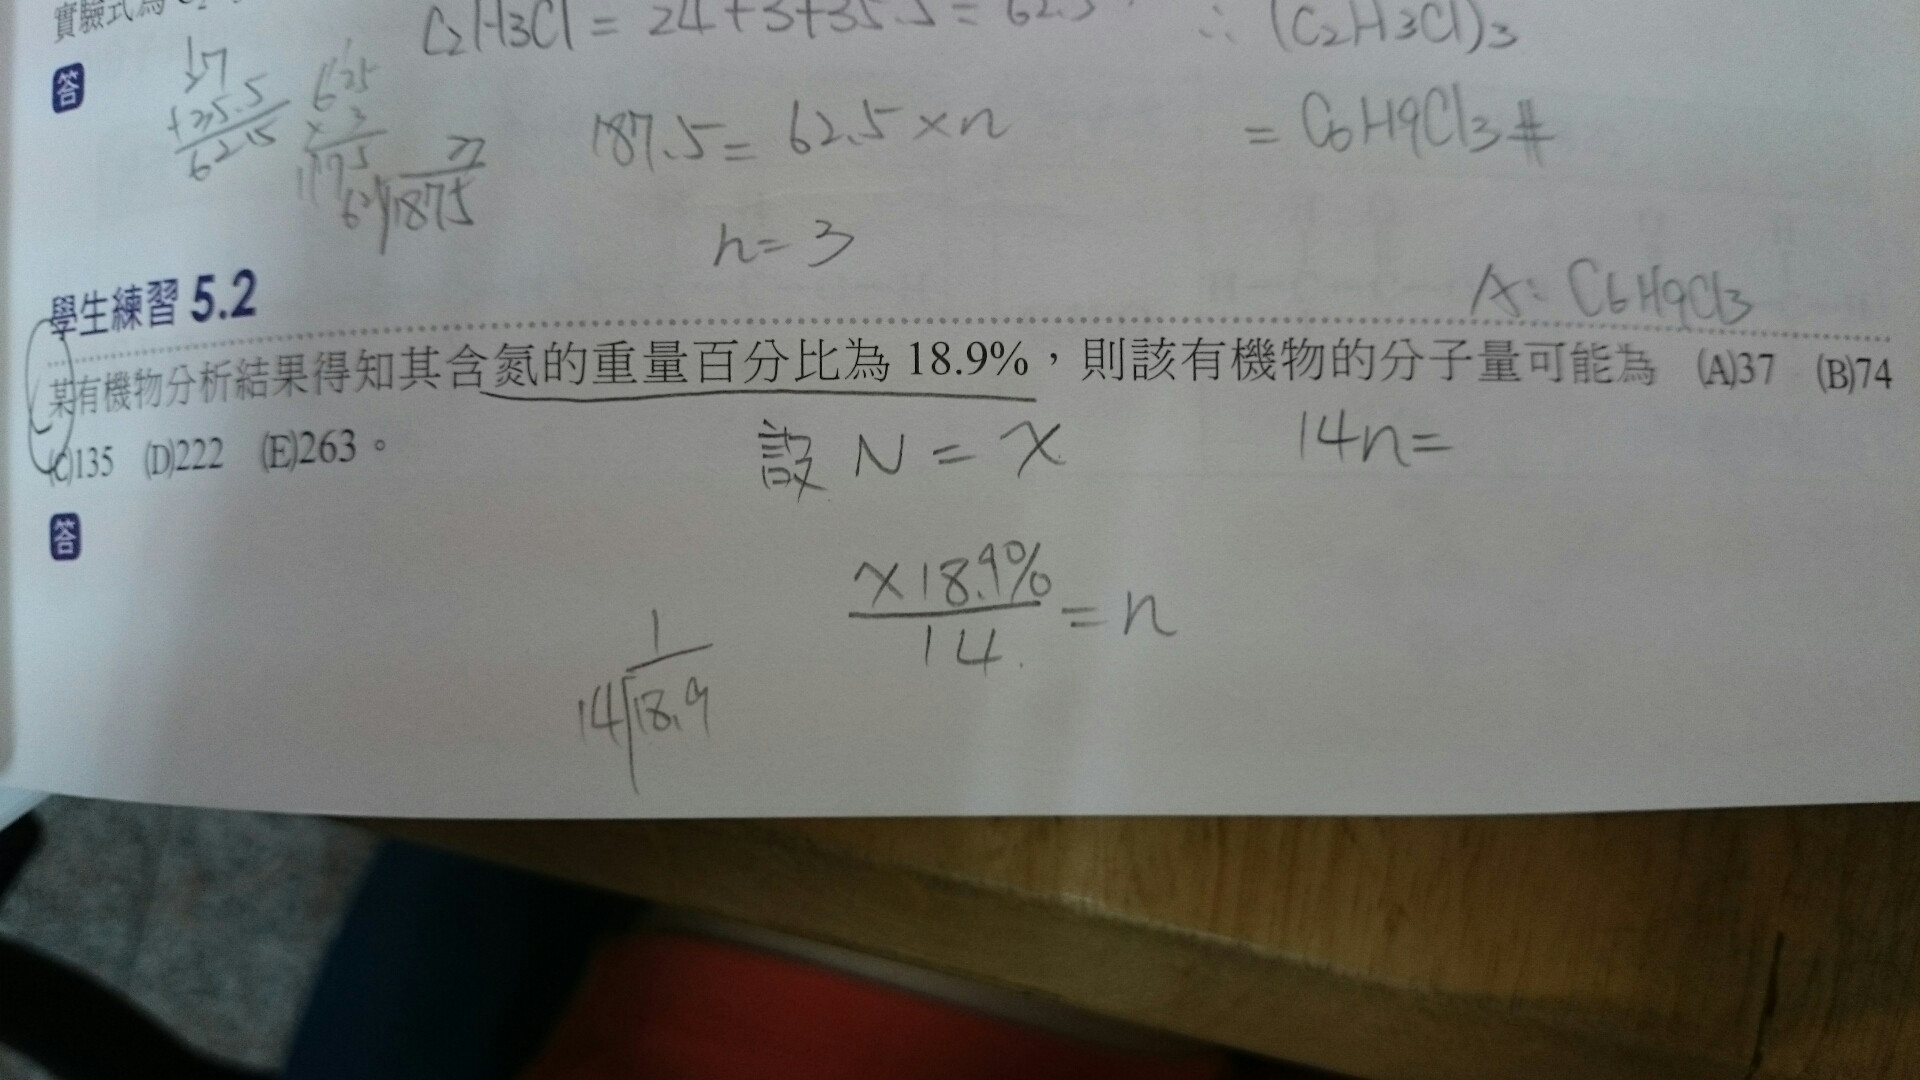 實驗式為 C₂
C₂H₃Cl = 24+3+35.5 = 62.5
∴ (C₂H₃Cl)₃
答
27
+35.5
62.5
625
× 3
187.5 = 62.5 × n
= C₆H₉Cl₃ #
1875
n = 3
學生練習 5.2
A: C₆H₉Cl₃
某有機物分析結果得知其含氮的重量百分比為 18.9%，則該有機物的分子量可能為 (A)37 (B)74
(C)135 (D)222 (E)263。
設 N = x
14n =
答
x18.9%
14
= n
1
14 18.9